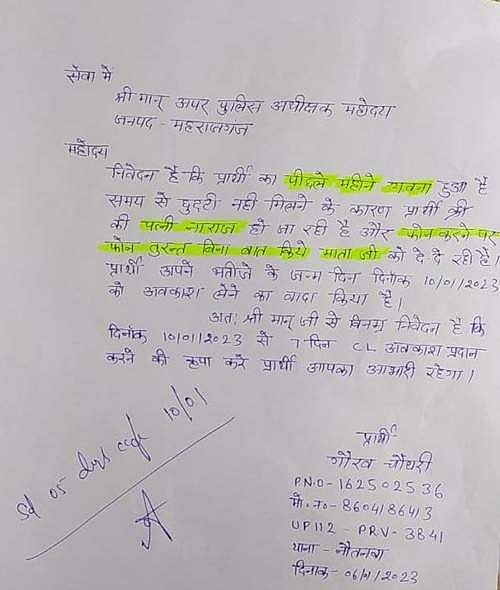 सेवा में
श्री मान् अपर पुलिस अधीक्षक महोदय
जनपद - महराजगंज
महोदय
निवेदन है कि प्रार्थी का पीछले महीने गवना हुआ है
समय से छुट्टी नही मिलने के कारण प्रार्थी श्री
की पत्नी नाराज हो जा रही है और फोन करने पर
फोन तुरन्त बिना बात किये माता जी को दे दे रही है।
प्रार्थी अपने भतीजे के जन्म दिन दिनांक 10/01/2023
को अवकाश लेने का वादा किया है।
अतः श्री मान् जी से विनम्र निवेदन है कि
दिनांक 10/01/2023 से 7 दिन CL अवकाश प्रदान
करने की कृपा करे प्रार्थी आपका आभारी रहेगा।
05 days 10/01
प्रार्थी
गौरव चौधरी
P.N.O- 162502536
मो. न०- 8604186413
UP112 - PRV- 3841
थाना - नौतनवा
दिनांक- 06/01/2023